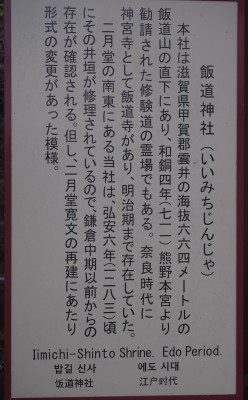 飯道神社(いいみちじんじゃ)
本社は滋賀県甲賀郡雲井の海抜六六四メートルの
飯道山の直下にあり、和銅四年(七一一)熊野本宮より
勧請された修験道の霊場でもある。奈良時代に
神宮寺として飯道寺があり、明治期まで存在していた。
二月堂の南東にある当社は、弘安六年(一二八三)頃
にその井垣が修理されているので、鎌倉中期以前からの
存在が確認される。但し、二月堂寛文の再建にあたり
形式の変更があった模様。
Iimichi-Shinto Shrine. Edo Period.
밥길 신사 에도 시대
饭道神社 江户时代